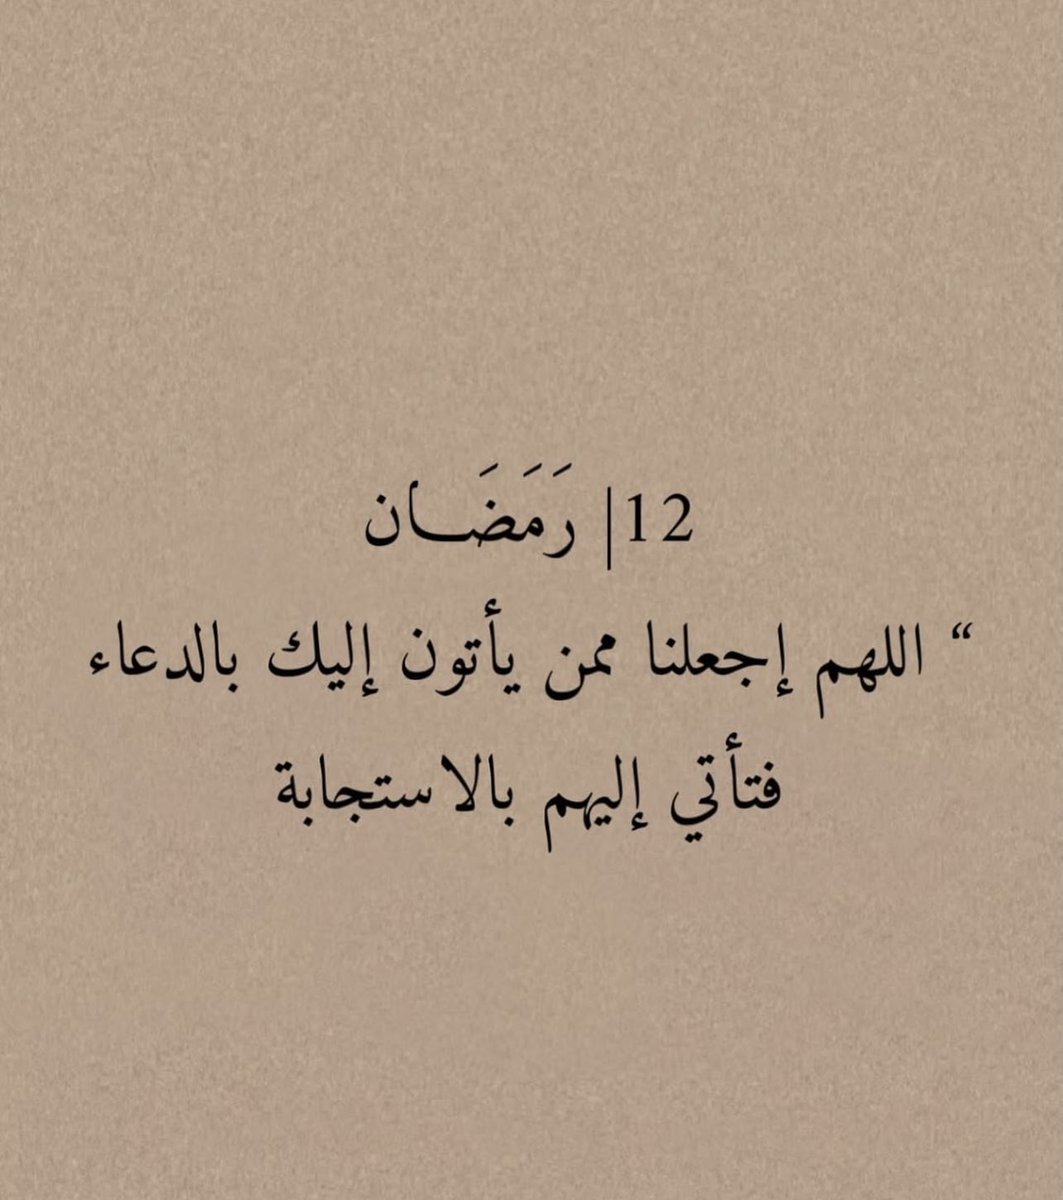 12| رَمَضَـان
“ اللهم إجعلنا ممن يأتون إليك بالدعاء
فتأتي إليهم بالاستجابة